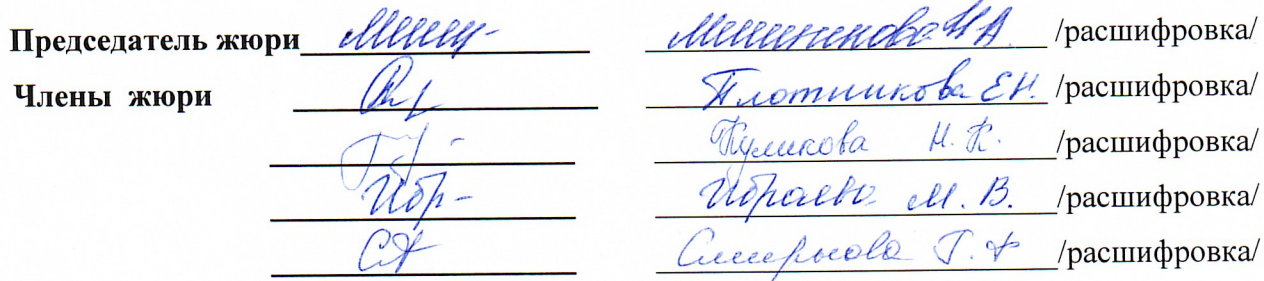 Председатель жюри Мишинкова Н А. /расшифровка/
Члены жюри Плотникова Е Н. /расшифровка/
Куликова Н. К. /расшифровка/
Ибр- Ибраева М. В. /расшифровка/
СА Смирнова Г. А /расшифровка/